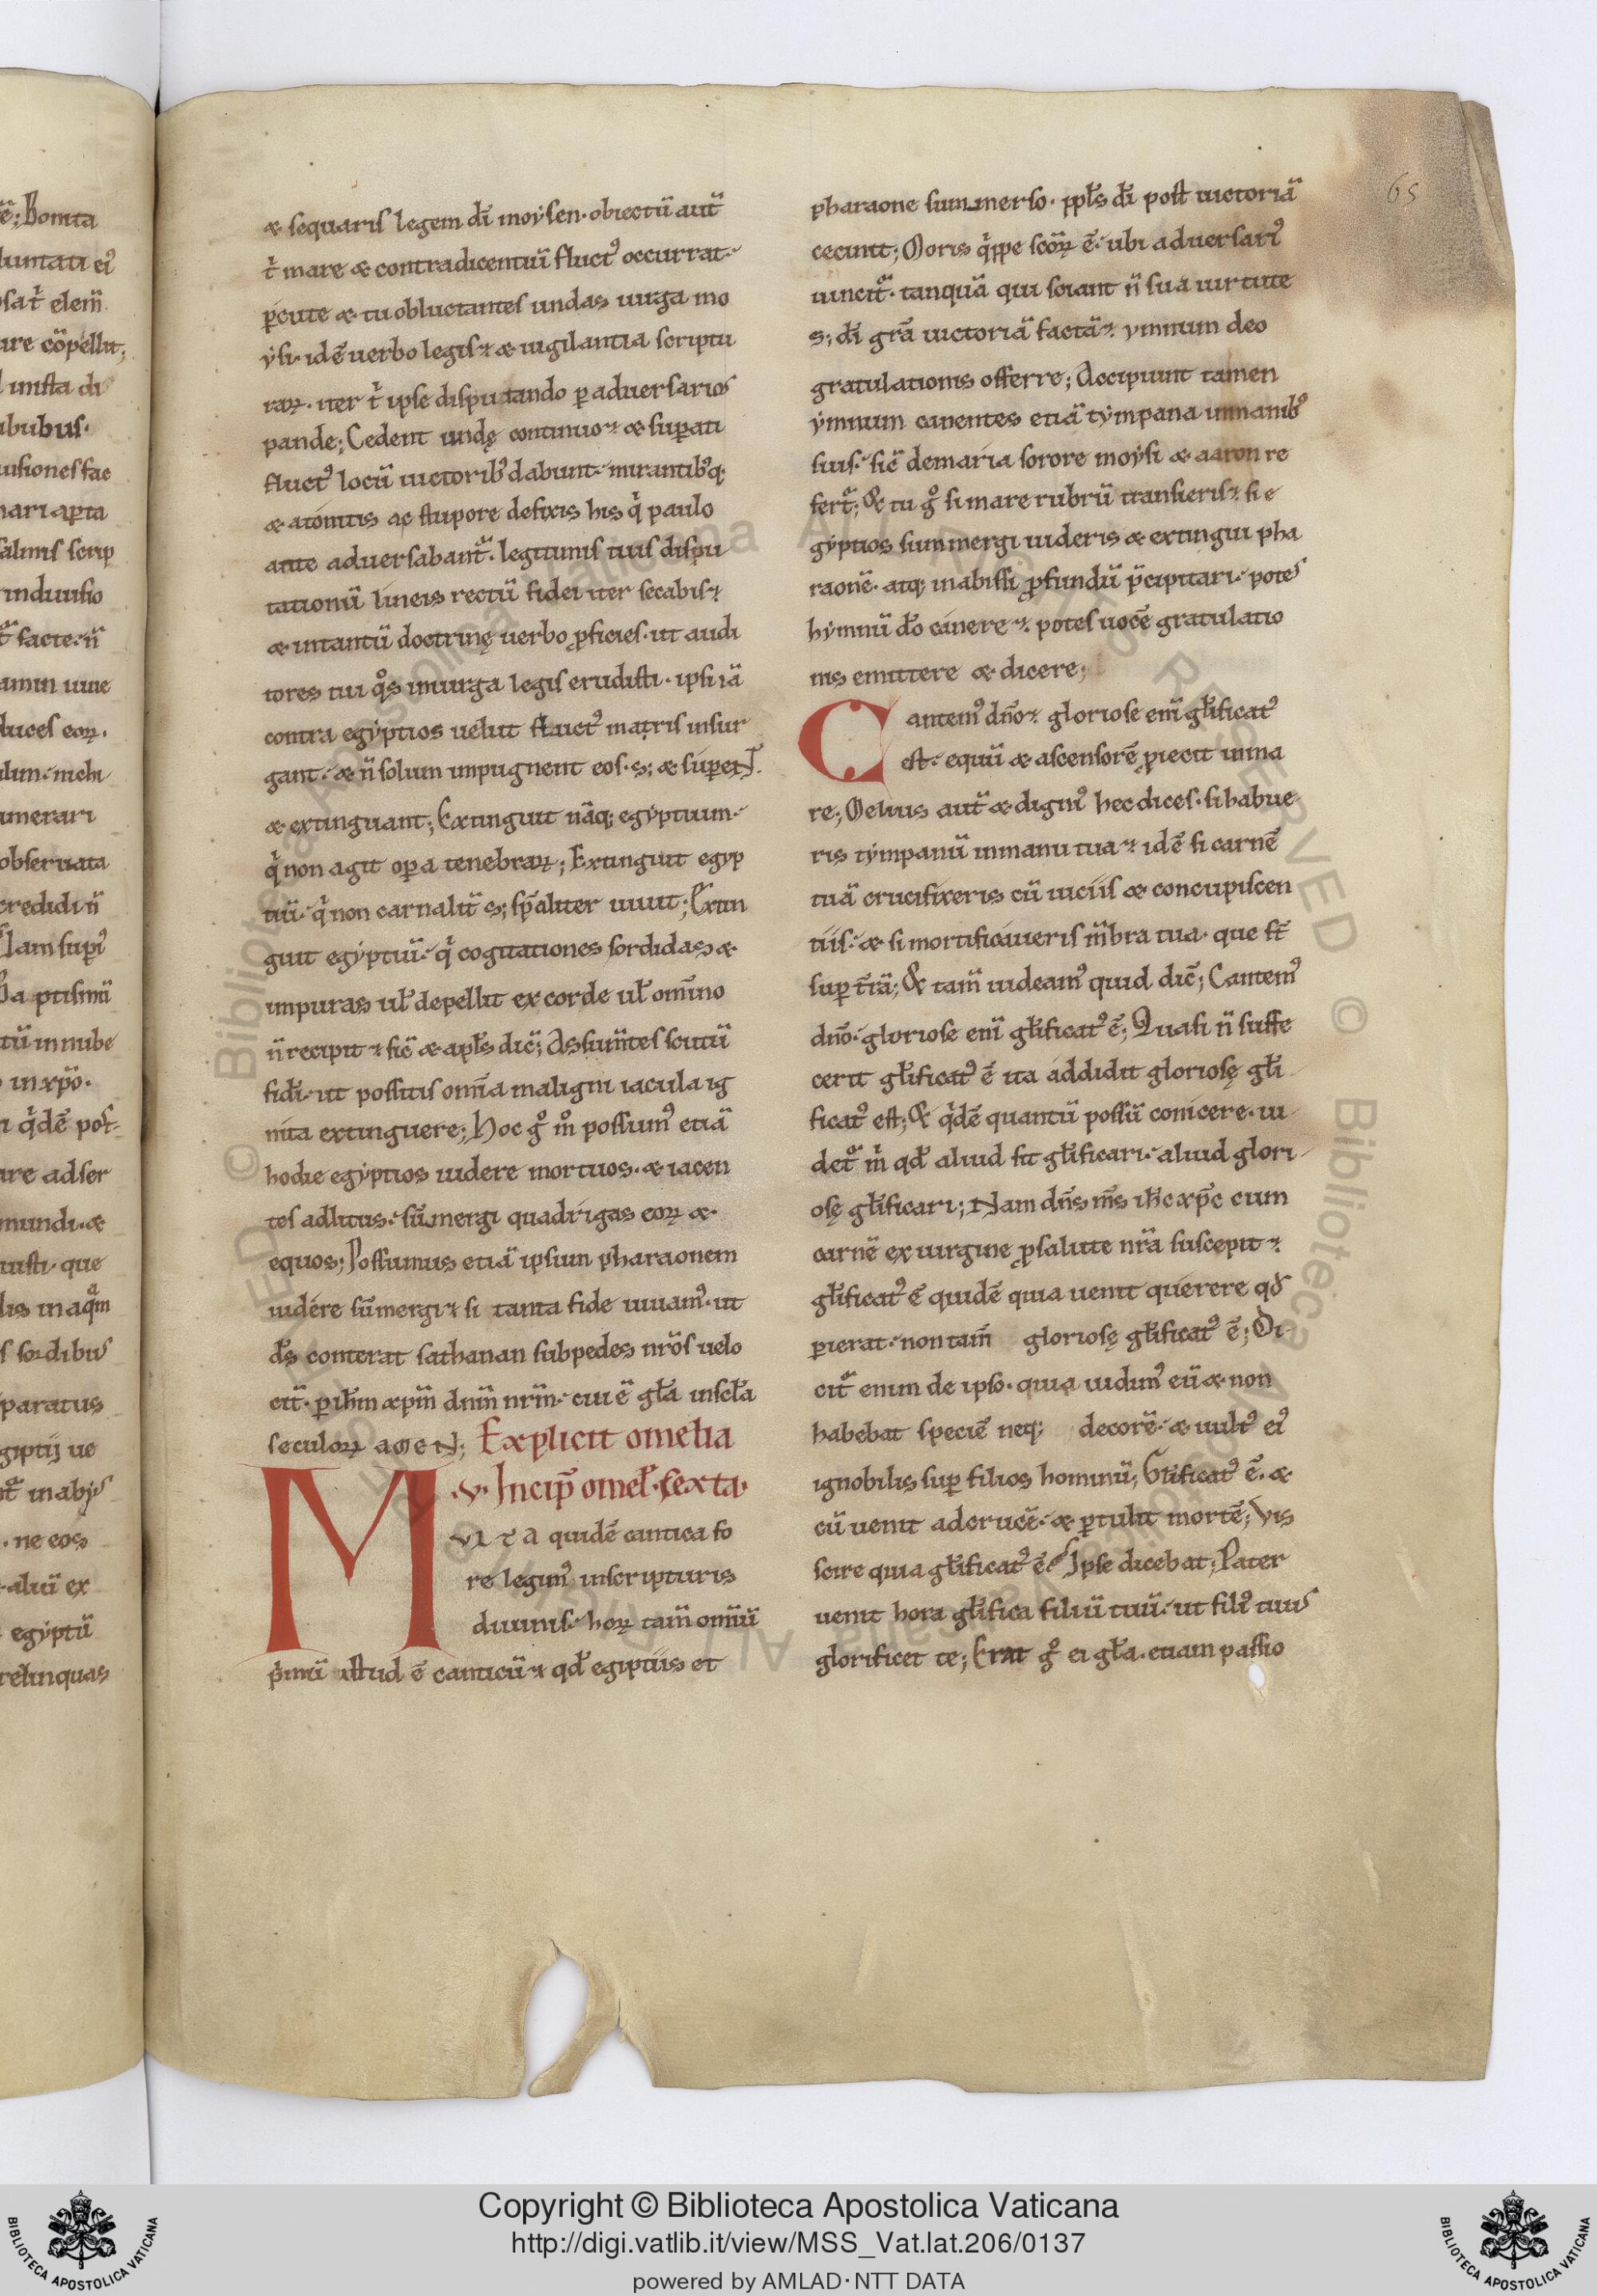 65
æ sequaris legem dī moẏsen· obiectū aut̄
t' mare æ contradicentū fluct᾽ occurrat·
ꝑcute æ tu obluctantes undas uirga mo
ẏsi· idē uerbo legis æ uigilantia scriptu
raꝝ· iter t' ipse disputando ꝑ aduersarios
pande; Cedent undę continuo æ suꝑati
fluct᾽ locū uictorib᾽ dabunt· mirantib᾽q;
æ atonitis ac stupore defixis his q' paulo
ante aduersabant᷑· legitimis tuis dispu
tationū lineis rectū fidei iter secabis
æ intantū doctrinę uerbo ꝓficies· ut audi
tores tui q°s inuirga legis erudisti· ipsi iā
contra egẏptios uelut fluct᾽ maris insur
gant· æ n̄ solum impugnent eos· s; æ superent.
æ extinguant; Extinguit nāq; egẏptium·
q' non agit oꝑa tenebraꝝ; Extinguit egẏp
tiū· q' non carnalit̄ s; sp̄aliter uiuit; Extin
guit egẏptiū· q' cogitationes sordidas æ
impuras ul̄ depellit ex corde ul̄ om̄ino
n̄ recipit sic̄ æ apl̄s dic̄; Assum̄tes scutū
fidi· ut possitis om̄ia maligni iacula ig
nita extinguere; Hoc g° m° possum᾽ etiā
hodie egẏptios uidere mortuos· æ iacen
tes adlitus· sūmergi quadrigas eoꝝ æ·
equos; Possumus etiā ipsum pharaonem
uidere sūmergi si tanta fide uiuam᾽· ut
ds̄ conterat sathanan subpedes nr̄os uelo
cit̄· ꝑ ih̄m æpm̄ dnm̄ nrm̄· cui ē gl̄a inscl̄a
seculoꝝ amen; Explicit omelia
·v· Incip̄ omel̄· sexta·
MVLTA quidē cantica fo
re legim᾽ inscripturis
diuinis· hoꝝ tam̄ omīū
p'mū istud ē canticū qd̄ egiptiis et
pharaone summerso· ppl̄s dī post uictoriā
cecinit; Moris q'ppe scōꝝ ē· ubi aduersari᾽
uincit᷑· tanquā qui sciant n̄ sua uirtute
s; dī grā uictoriā factā ymnum deo
gratulationis offerre; Accipiunt tamen
ẏmnum canentes etiā tẏmpana inmanib᾽
suis· sic̄ demaria sorore moẏsi æ aaron re
fert᷑; & tu g° si mare rubrū transieris si e
gẏptios summergi uideris æ extingui pha
raonē· atq; inabissi ꝓfundū p̄cipitari· potes
hẏmnū do̅ canere potes uocē gratulatio
nis emittere æ dicere;
Cantem᾽ dn̄o gloriose enī gl̄ificat᾽
est· equū æ ascensorē ꝓiecit inma
re; Melius aut̄ æ digni᾽ hec dices· si habue
ris tẏmpanū inmanu tua idē si carnē
tuā crucifixeris cū uiciis æ concupiscen
tiis· æ si mortificaueris m̄bra tua· que st̄
suꝑ t̄rā; & tam̄ uideam᾽ quid dic̄; Cantem᾽
dn̄o· gloriose enī gl̄ificat᾽ ē; Quasi n̄ suffe
cerit gl̄ificat᾽ ē ita addidit gloriosę gl̄i
ficat᾽ est; & q'dē quantū possū conicere· ui
det᷑ m' qd̄ aliud sit gl̄ificari· aliud glori
osę gl̄ificari; Nam dn̄s ms̄ ih̄c xp̄c cum
carnē ex uirgine ꝓsalute nr̄a suscepit
gl̄ificat᾽ ē quidē quia uenit querere qd̄
ꝑierat· non tam̄ gloriosę gl̄ificat᾽ ē; Di
cit᷑ enim de ipso· quia uidim᾽ eū æ non
habebat speciē neq; decorē· æ uult᾽ ei᾽
ignobilis suꝑ filios hominū; Gl̄ificat᾽ ē· æ
cū uenit adcrucē· æ ꝑtulit mortē; Vis
scire quia gl̄ificat᾽ ē Ipse dicebat; Pater
uenit hora gl̄ifica filiū tuū· ut fili᾽ tuus
glorificet te; Erat g° ei gl̄a· etiam passio
Copyright © Biblioteca Apostolica Vaticana
http://digi.vatlib.it/view/MSS_Vat.lat.206/0137
powered by AMLAD·NTT DATA
BIBLIOTECA APOSTOLICA VATICANA
BIBLIOTECA APOSTOLICA VATICANA